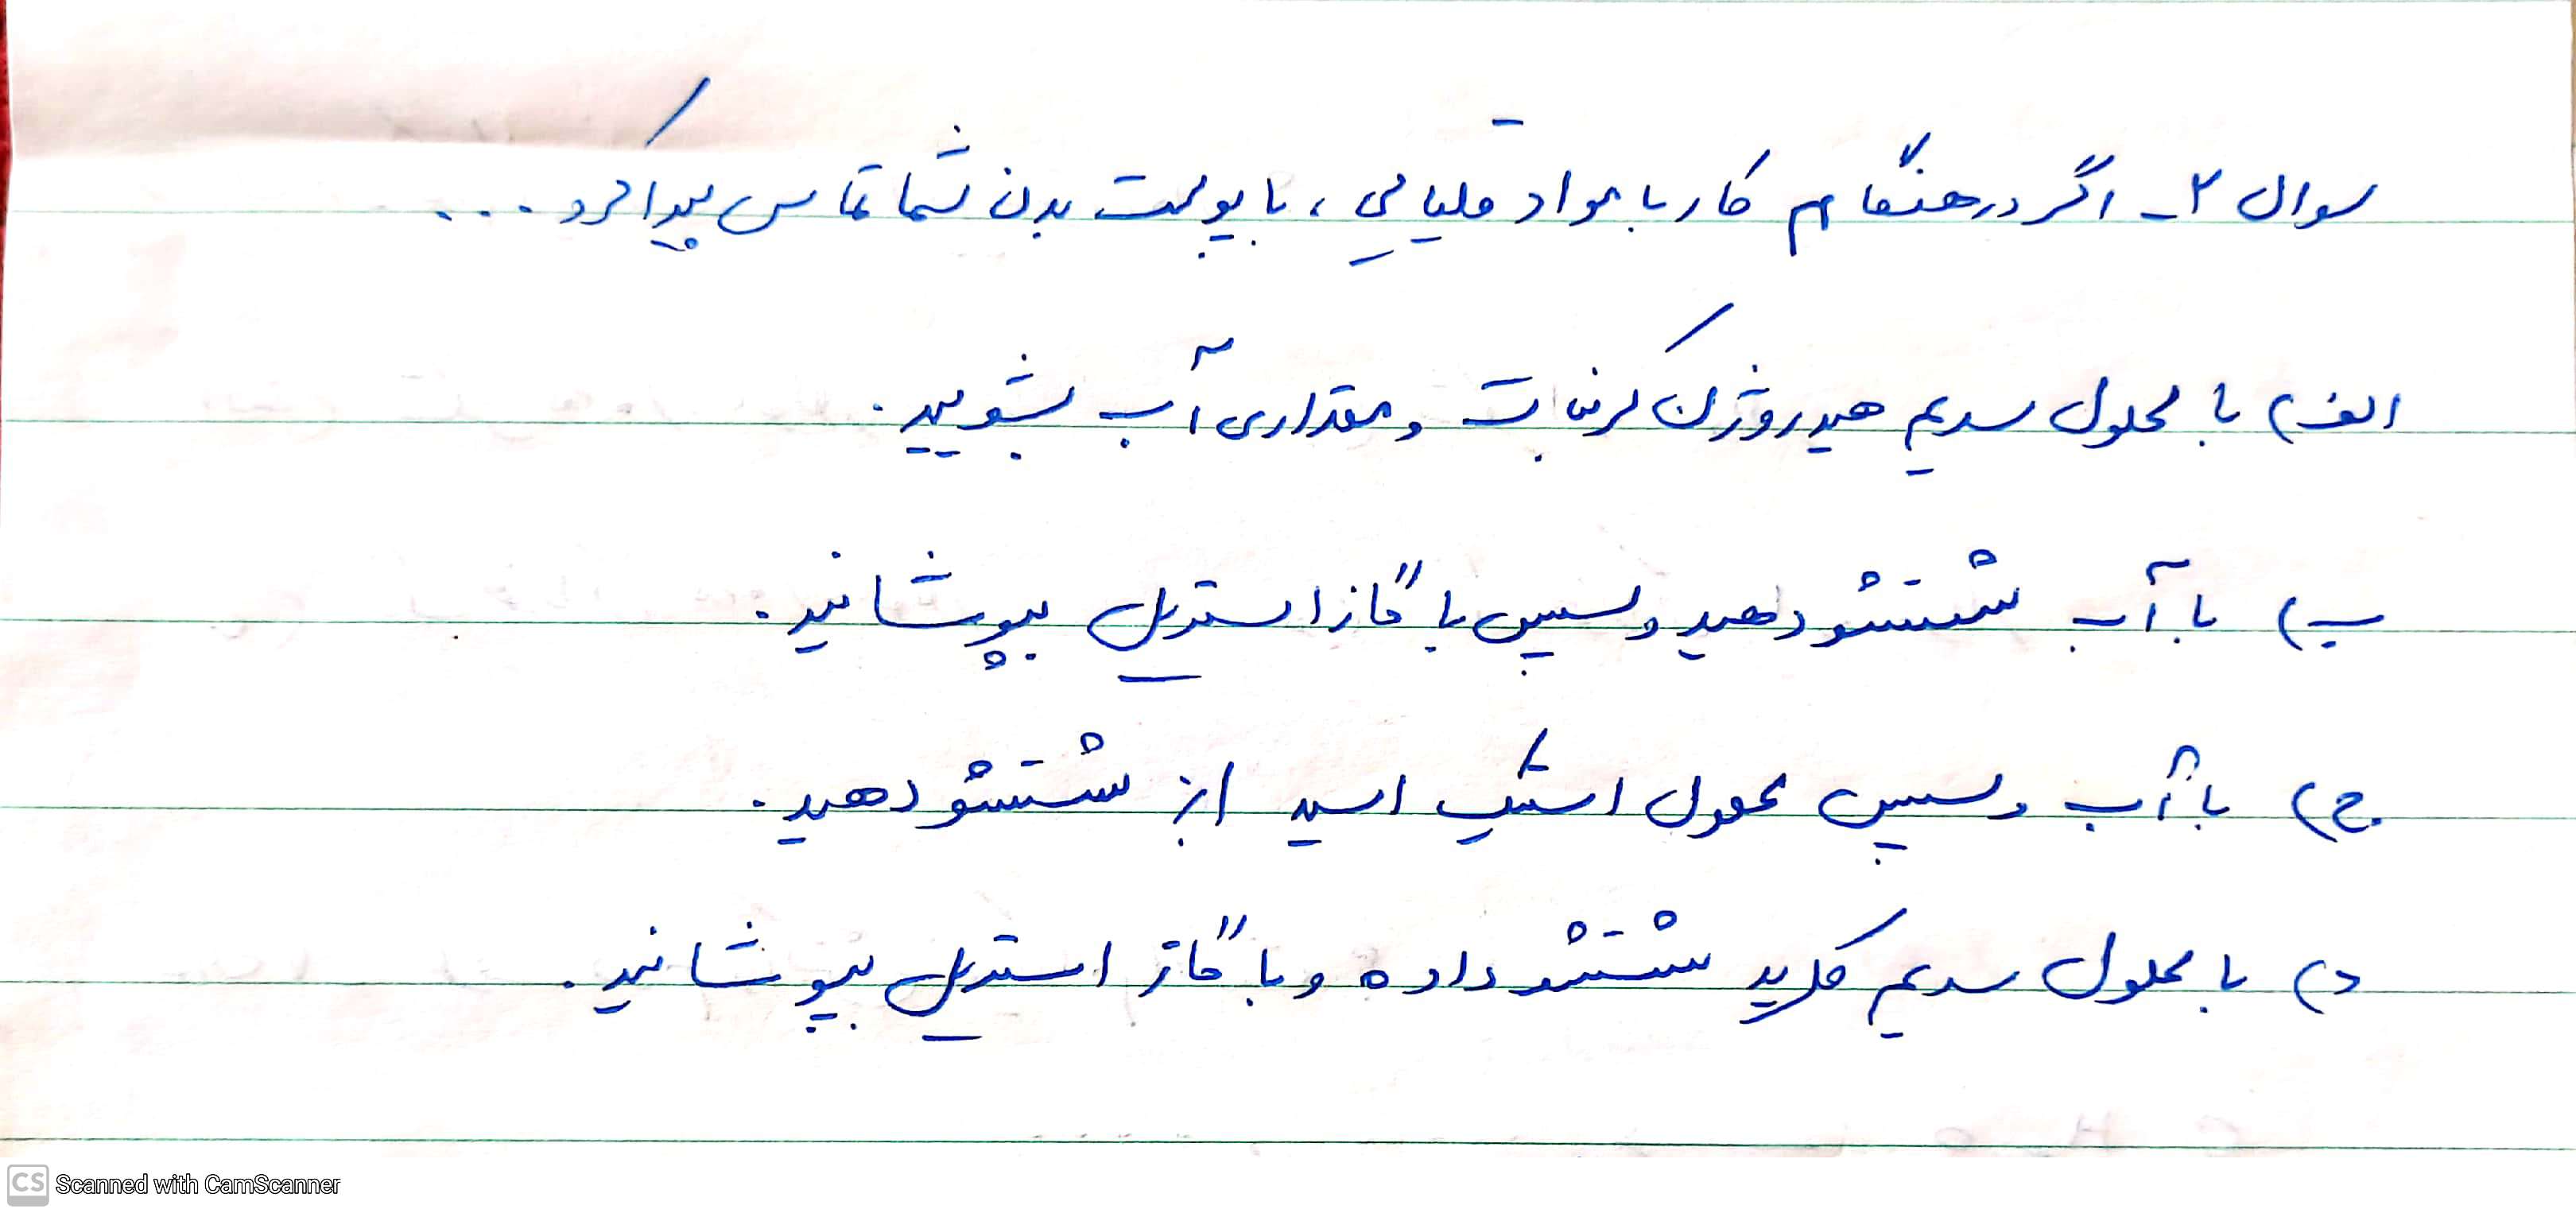 سوال ۲ـ اگر در هنگام کار با مواد قلیایی، با پوست بدن شما تماس پیدا کرد ...
الف) با محلول سدیم هیدروژن کربنات و مقداری آب بشویید.
ب) با آب شستشو دهید و سپس با گاز استریل بپوشانید.
ج) با آب و سپس محلول استیک اسید / از شستشو دهید.
د) با محلول سدیم کلرید شستشو داده و با گاز استریل بپوشانید.
CS Scanned with CamScanner